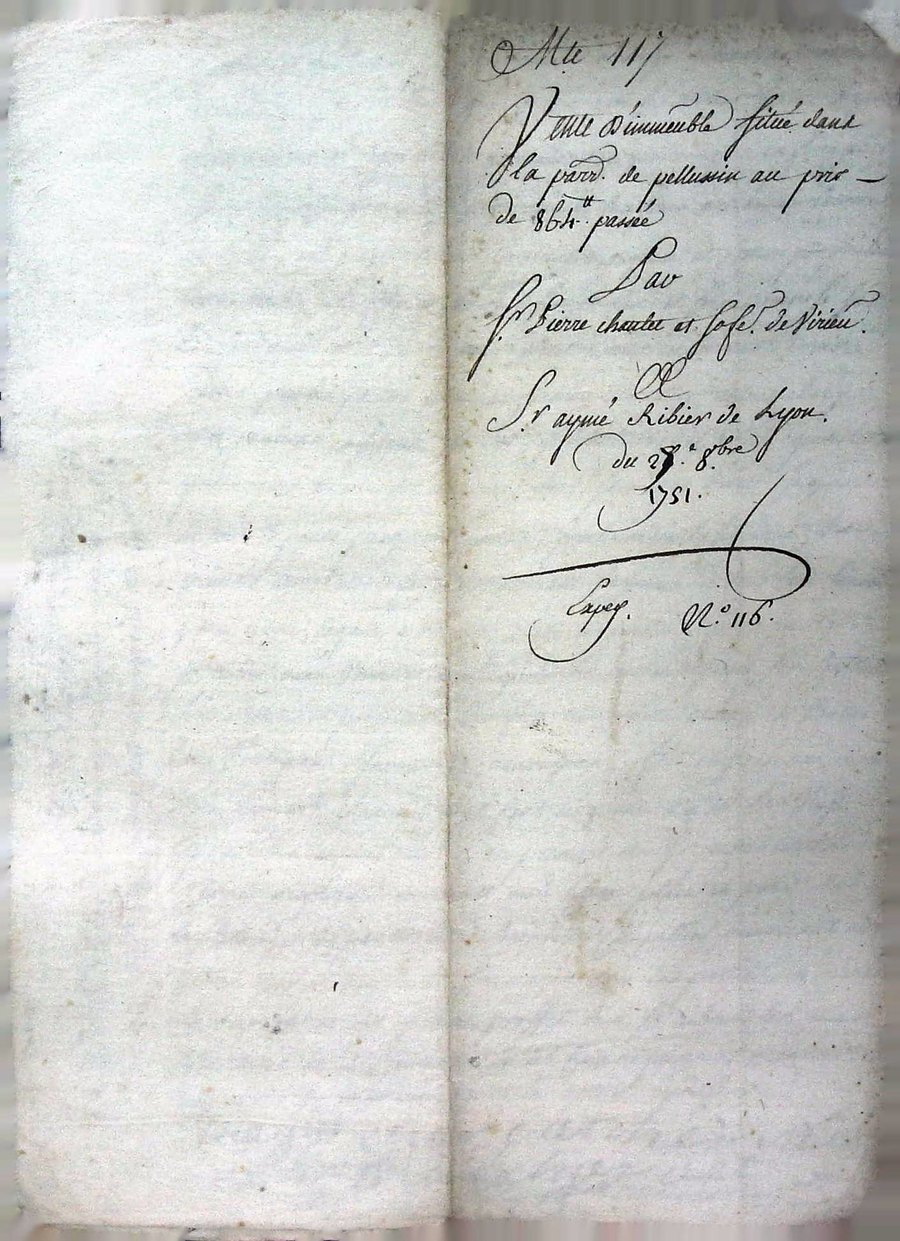 Mte 117
Vente d'immeuble située dans
la parr. de pellussin au prix
de 864tt. passée
Par
Sr. Pierre chaulet et Josе. de Virieu.
A
Sr. aymé Ribier de Lyon.
du 8.bre
1751.
Expey. No. 116.